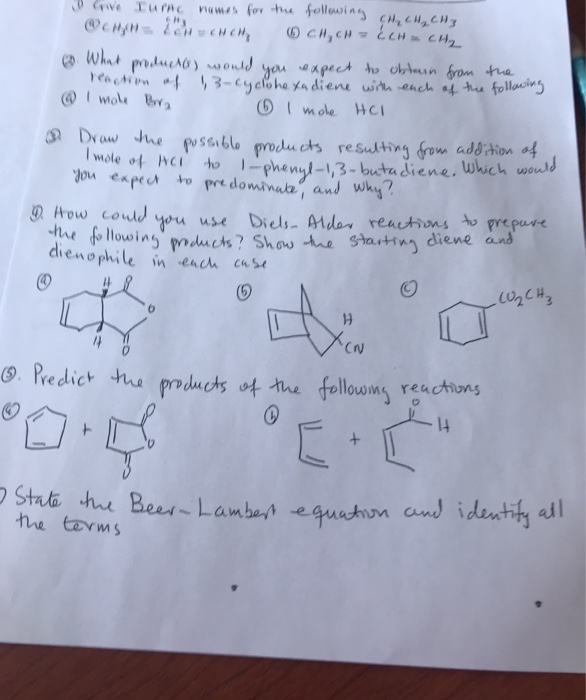 Give IUPAC names for the following CH₂CH₂CH₃
ⓐ CH₃CH = CCH = CHCH₃ ⓑ CH₃CH = CCH = CH₂
CH₃
② What product(s) would you expect to obtain from the
reaction of 1,3-cyclohexadiene with each of the following
ⓐ 1 mole Br₂ ⓑ 1 mole HCl
③ Draw the possible products resulting from addition of
1 mole of HCl to 1-phenyl-1,3-butadiene. Which would
you expect to predominate, and why?
How could you use Diels-Alder reactions to prepare
the following products? Show the starting diene and
dienophile in each case
ⓐ H O O H O
ⓑ H CN
ⓒ CO₂CH₃
⑤. Predict the products of the following reactions
ⓐ + O O O
ⓑ + O H
State the Beer-Lambert equation and identify all
the terms